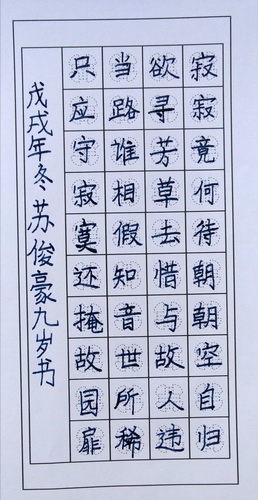 寂寂竟何待朝朝空自归
欲寻芳草去惜与故人违
当路谁相假知音世所稀
只应守寂寞还掩故园扉
戊戌年冬苏俊豪九岁书